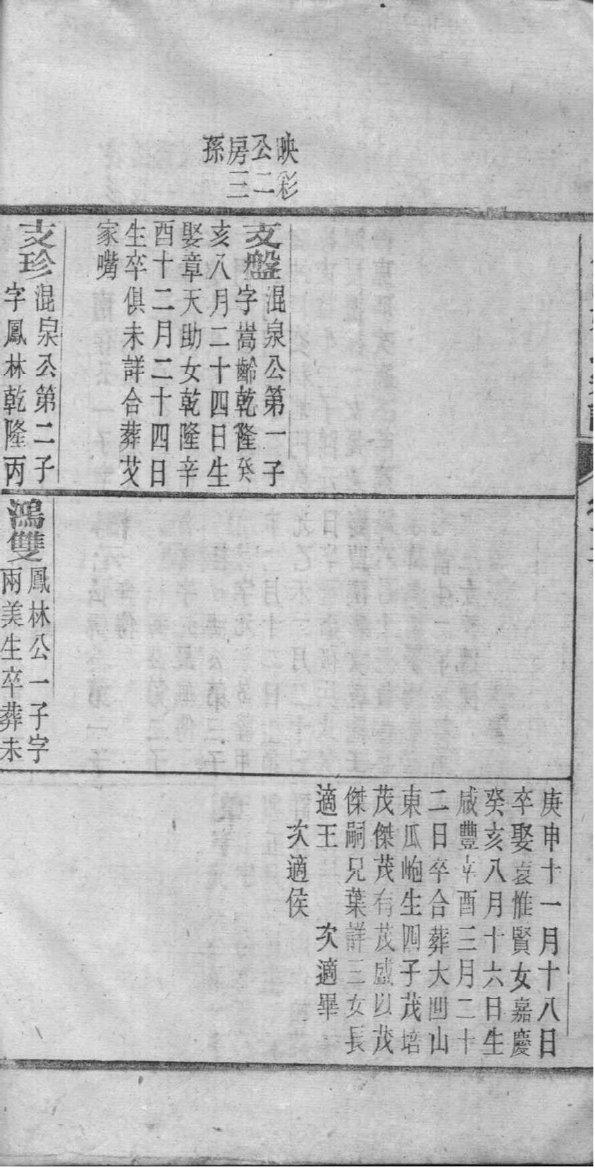 映彩
公二
房三
孫
支盤
混泉公第一子
字嵩齡乾隆癸
亥八月二十四日生
娶章天助女乾隆辛
酉十二月二十四日
生卒俱未詳合葬艾
家嘴
支珍
混泉公第二子
字鳳林乾隆丙
鴻雙
鳳林公一子字
兩美生卒葬未
庚申十一月十八日
卒娶袁惟賢女嘉慶
癸亥八月十六日生
咸豐辛酉三月二十
二日卒合葬大凹山
東瓜峗生四子茂培
茂傑茂有茂盛以茂
傑嗣兄葉詳三女長
適王 次適畢
次適侯